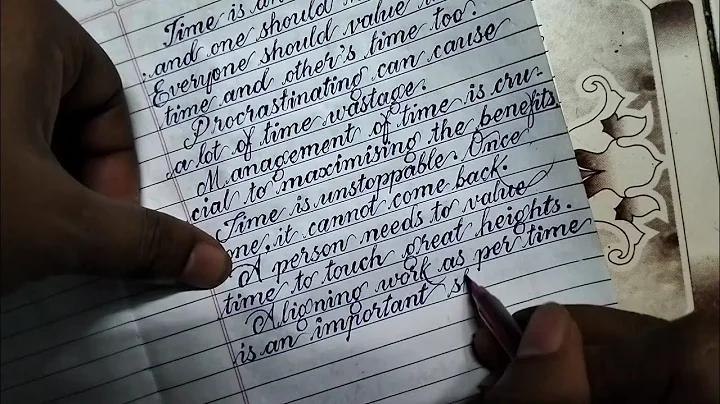 Time is an
and one should
Everyone should value
time and other's time too.
Procrastinating can cause
a lot of time wastage.
Management of time is cru-
cial to maximising the benefits.
Time is unstoppable. Once
, it cannot come back.
A person needs to value
time to touch great heights.
Aligning work as per time
is an important s